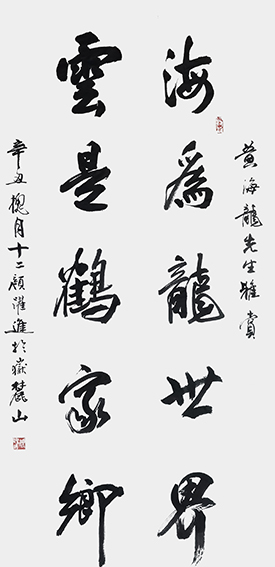 黄海龍先生雅賞
海為龍世界
雲是鶴家鄉
辛丑槐月十二顧躍進於嶽麓山